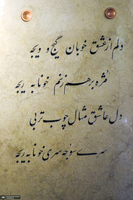 دلم از عشق خوبان گیج و ویجه
مژه برهم زنم خونابه ریجه
دل عاشق مثال چوب تر بی
سری سوجه سری خونابه ریجه